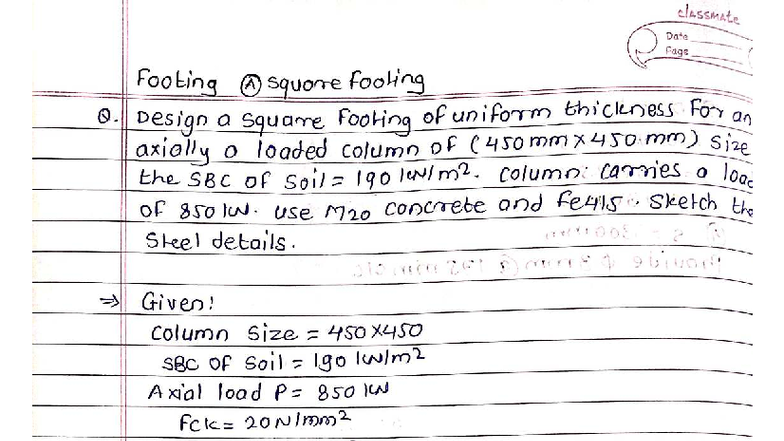 classmate
Date
Page
Footing Ⓐ Square footing
Q. Design a Square Footing of uniform thickness For an
axially a loaded column of (450mm x 450mm) Size
the SBC of Soil = 190 kN/m². Column carries a load
of 850 kN. Use M20 Concrete and fe415. Sketch the
Steel details.
⇒ Given!
Column Size = 450x450
SBC of Soil = 190 kN/m²
Axial load P = 850 kN
Fck = 20N/mm²